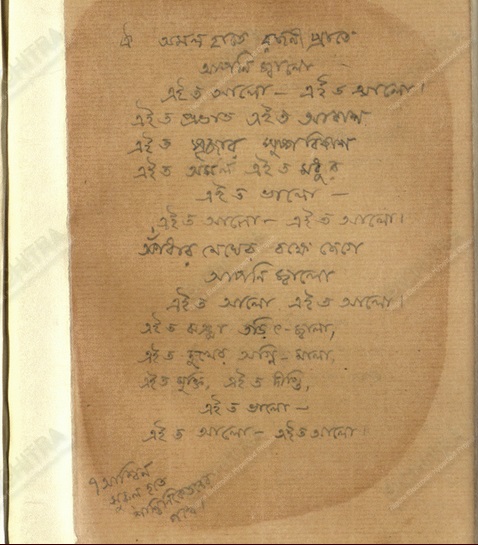 ঐ অমল হাতে রজনী প্রাতে
আপনি জ্বালো
এই ত আলো — এই ত আলো।
এই ত প্রভাত এই ত আকাশ
এই ত পূজার পুষ্পবিকাশ
এই ত বিমল এই ত মধুর
এই ত ভালো —
এই ত আলো — এই ত আলো।
আঁধার মেঘের বক্ষে জেগে
আপনি জ্বালো
এই ত আলো এই ত আলো।
এই ত ঝঞ্ঝা তড়িৎ-জ্বালা,
এই ত দুখের অগ্নি-মালা,
এই ত মুক্তি, এই ত দীপ্তি,
এই ত ভালো —
এই ত আলো — এই ত আলো।
৭ আশ্বিন
সুরুল হতে
শান্তিনিকেতনের
পথে।